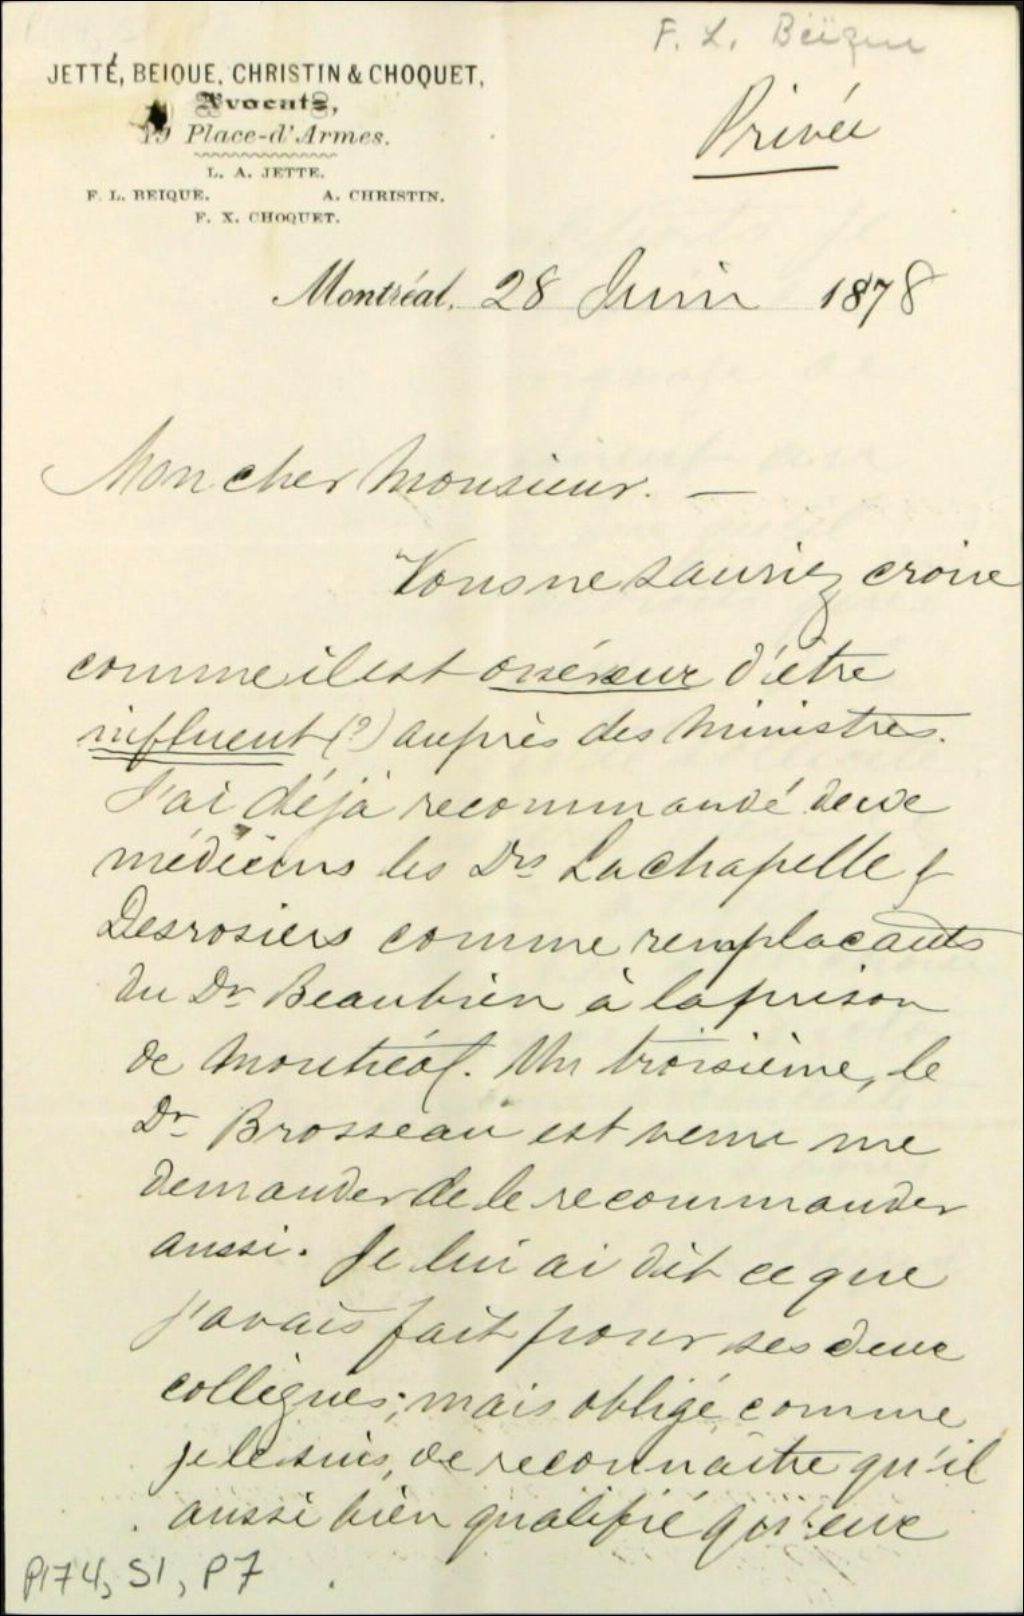 F. L. Béïque
JETTÉ, BEIQUE, CHRISTIN & CHOQUET,
Avocats,
19 Place-d'Armes.
Privée
L. A. JETTE.
F. L. BEIQUE. A. CHRISTIN.
F. X. CHOQUET.
Montréal, 28 Juin 1878
Mon cher Monsieur. —
Vous ne sauriez croire
comme il est onéreux d'être
influent (?) auprès des Ministres.
J'ai déjà recommandé deux
médecins les Drs Lachapelle &
Desrosiers comme remplacants
du Dr Beaubien à la prison
de Montréal. Un troisième, le
Dr Brosseau est venu me
demander de le recommander
aussi. Je lui ai dit ce que
j'avais fait pour ses deux
collègues; mais obligé comme
je le suis, de reconnaitre qu'il
aussi bien qualifié qu'eux
P174, S1, P7